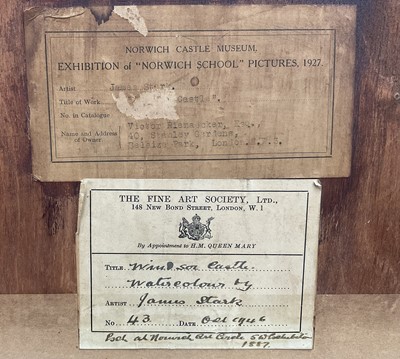 NORWICH CASTLE MUSEUM.
EXHIBITION of "NORWICH SCHOOL" PICTURES, 1927.
Artist James Stark.
Title of Work Castle".
No. in Catalogue
Victor Rienaecker, Esq.,
Name and Address of Owner 40, Stanley Gardens,
Belsize Park, London. N.W.3.
THE FINE ART SOCIETY, LTD.,
148 NEW BOND STREET, LONDON, W. 1
By Appointment to H.M. QUEEN MARY
TITLE: Windsor Castle.
Watercolour by
ARTIST James Stark
No. 43 DATE Oct 1946
at Norwich Art Circle Exhibition
1887.